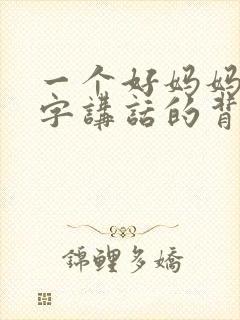 一个好妈妈
字講話的背
錦鯉多嬌